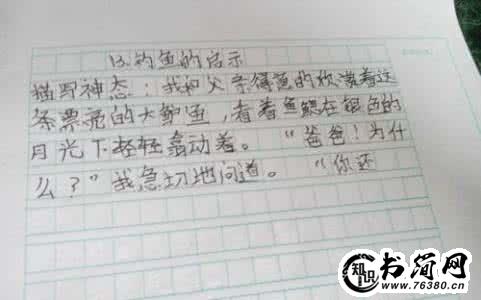 13.钓鱼的启示
描写神态：我和父亲得意的欣赏着这
条票亮的大鲈鱼，看着鱼鳃在银色的
月光下轻轻翕动着。“爸爸！为什
么？”我急切地问道。“你还
知识
书简网
www.76380.cn